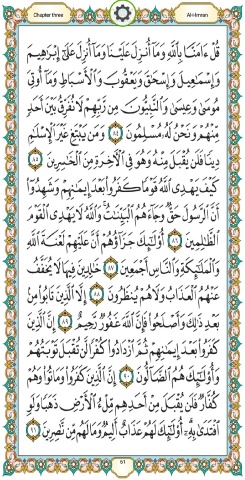 Chapter three
Al-Imran
قُلْ ءَامَنَّا بِٱللَّهِ وَمَآ أُنزِلَ عَلَيْنَا وَمَآ أُنزِلَ عَلَىٰٓ إِبْرَٰهِيمَ
وَإِسْمَٰعِيلَ وَإِسْحَٰقَ وَيَعْقُوبَ وَٱلْأَسْبَاطِ وَمَآ أُوتِيَ
مُوسَىٰ وَعِيسَىٰ وَٱلنَّبِيُّونَ مِن رَّبِّهِمْ لَا نُفَرِّقُ بَيْنَ أَحَدٍ
مِّنْهُمْ وَنَحْنُ لَهُۥ مُسْلِمُونَ ٨٤ وَمَن يَبْتَغِ غَيْرَ ٱلْإِسْلَٰمِ
دِينًا فَلَن يُقْبَلَ مِنْهُ وَهُوَ فِي ٱلْآخِرَةِ مِنَ ٱلْخَٰسِرِينَ ٨٥
كَيْفَ يَهْدِي ٱللَّهُ قَوْمًا كَفَرُوا۟ بَعْدَ إِيمَٰنِهِمْ وَشَهِدُوٓا۟
أَنَّ ٱلرَّسُولَ حَقٌّ وَجَآءَهُمُ ٱلْبَيِّنَٰتُ وَٱللَّهُ لَا يَهْدِي ٱلْقَوْمَ
ٱلظَّٰلِمِينَ ٨٦ أُو۟لَٰٓئِكَ جَزَآؤُهُمْ أَنَّ عَلَيْهِمْ لَعْنَةَ ٱللَّهِ
وَٱلْمَلَٰٓئِكَةِ وَٱلنَّاسِ أَجْمَعِينَ ٨٧ خَٰلِدِينَ فِيهَا لَا يُخَفَّفُ
عَنْهُمُ ٱلْعَذَابُ وَلَا هُمْ يُنظَرُونَ ٨٨ إِلَّا ٱلَّذِينَ تَابُوا۟ مِنۢ
بَعْدِ ذَٰلِكَ وَأَصْلَحُوا۟ فَإِنَّ ٱللَّهَ غَفُورٌ رَّحِيمٌ ٨٩ إِنَّ ٱلَّذِينَ
كَفَرُوا۟ بَعْدَ إِيمَٰنِهِمْ ثُمَّ ٱزْدَادُوا۟ كُفْرًا لَّن تُقْبَلَ تَوْبَتُهُمْ
وَأُو۟لَٰٓئِكَ هُمُ ٱلضَّآلُّونَ ٩٠ إِنَّ ٱلَّذِينَ كَفَرُوا۟ وَمَاتُوا۟ وَهُمْ
كُفَّارٌ فَلَن يُقْبَلَ مِنْ أَحَدِهِم مِّلْءُ ٱلْأَرْضِ ذَهَبًا وَلَوِ
ٱفْتَدَىٰ بِهِۦٓ أُو۟لَٰٓئِكَ لَهُمْ عَذَابٌ أَلِيمٌ وَمَا لَهُم مِّن نَّٰصِرِينَ ٩١
61